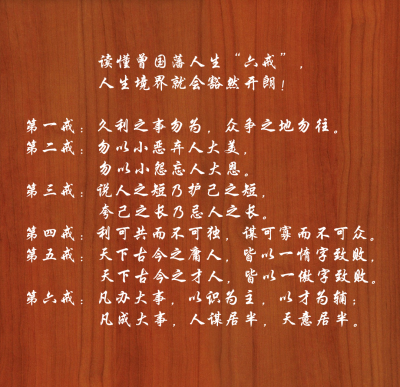 读懂曾国藩人生“六戒”，
人生境界就会豁然开朗！
第一戒：久利之事勿为，众争之地勿往。
第二戒：勿以小恶弃人大美，
勿以小怨忘人大恩。
第三戒：说人之短乃护己之短，
夸己之长乃忌人之长。
第四戒：利可共而不可独，谋可寡而不可众。
第五戒：天下古今之庸人，皆以一惰字致败，
天下古今之才人，皆以一傲字致败。
第六戒：凡办大事，以识为主，以才为辅；
凡成大事，人谋居半，天意居半。